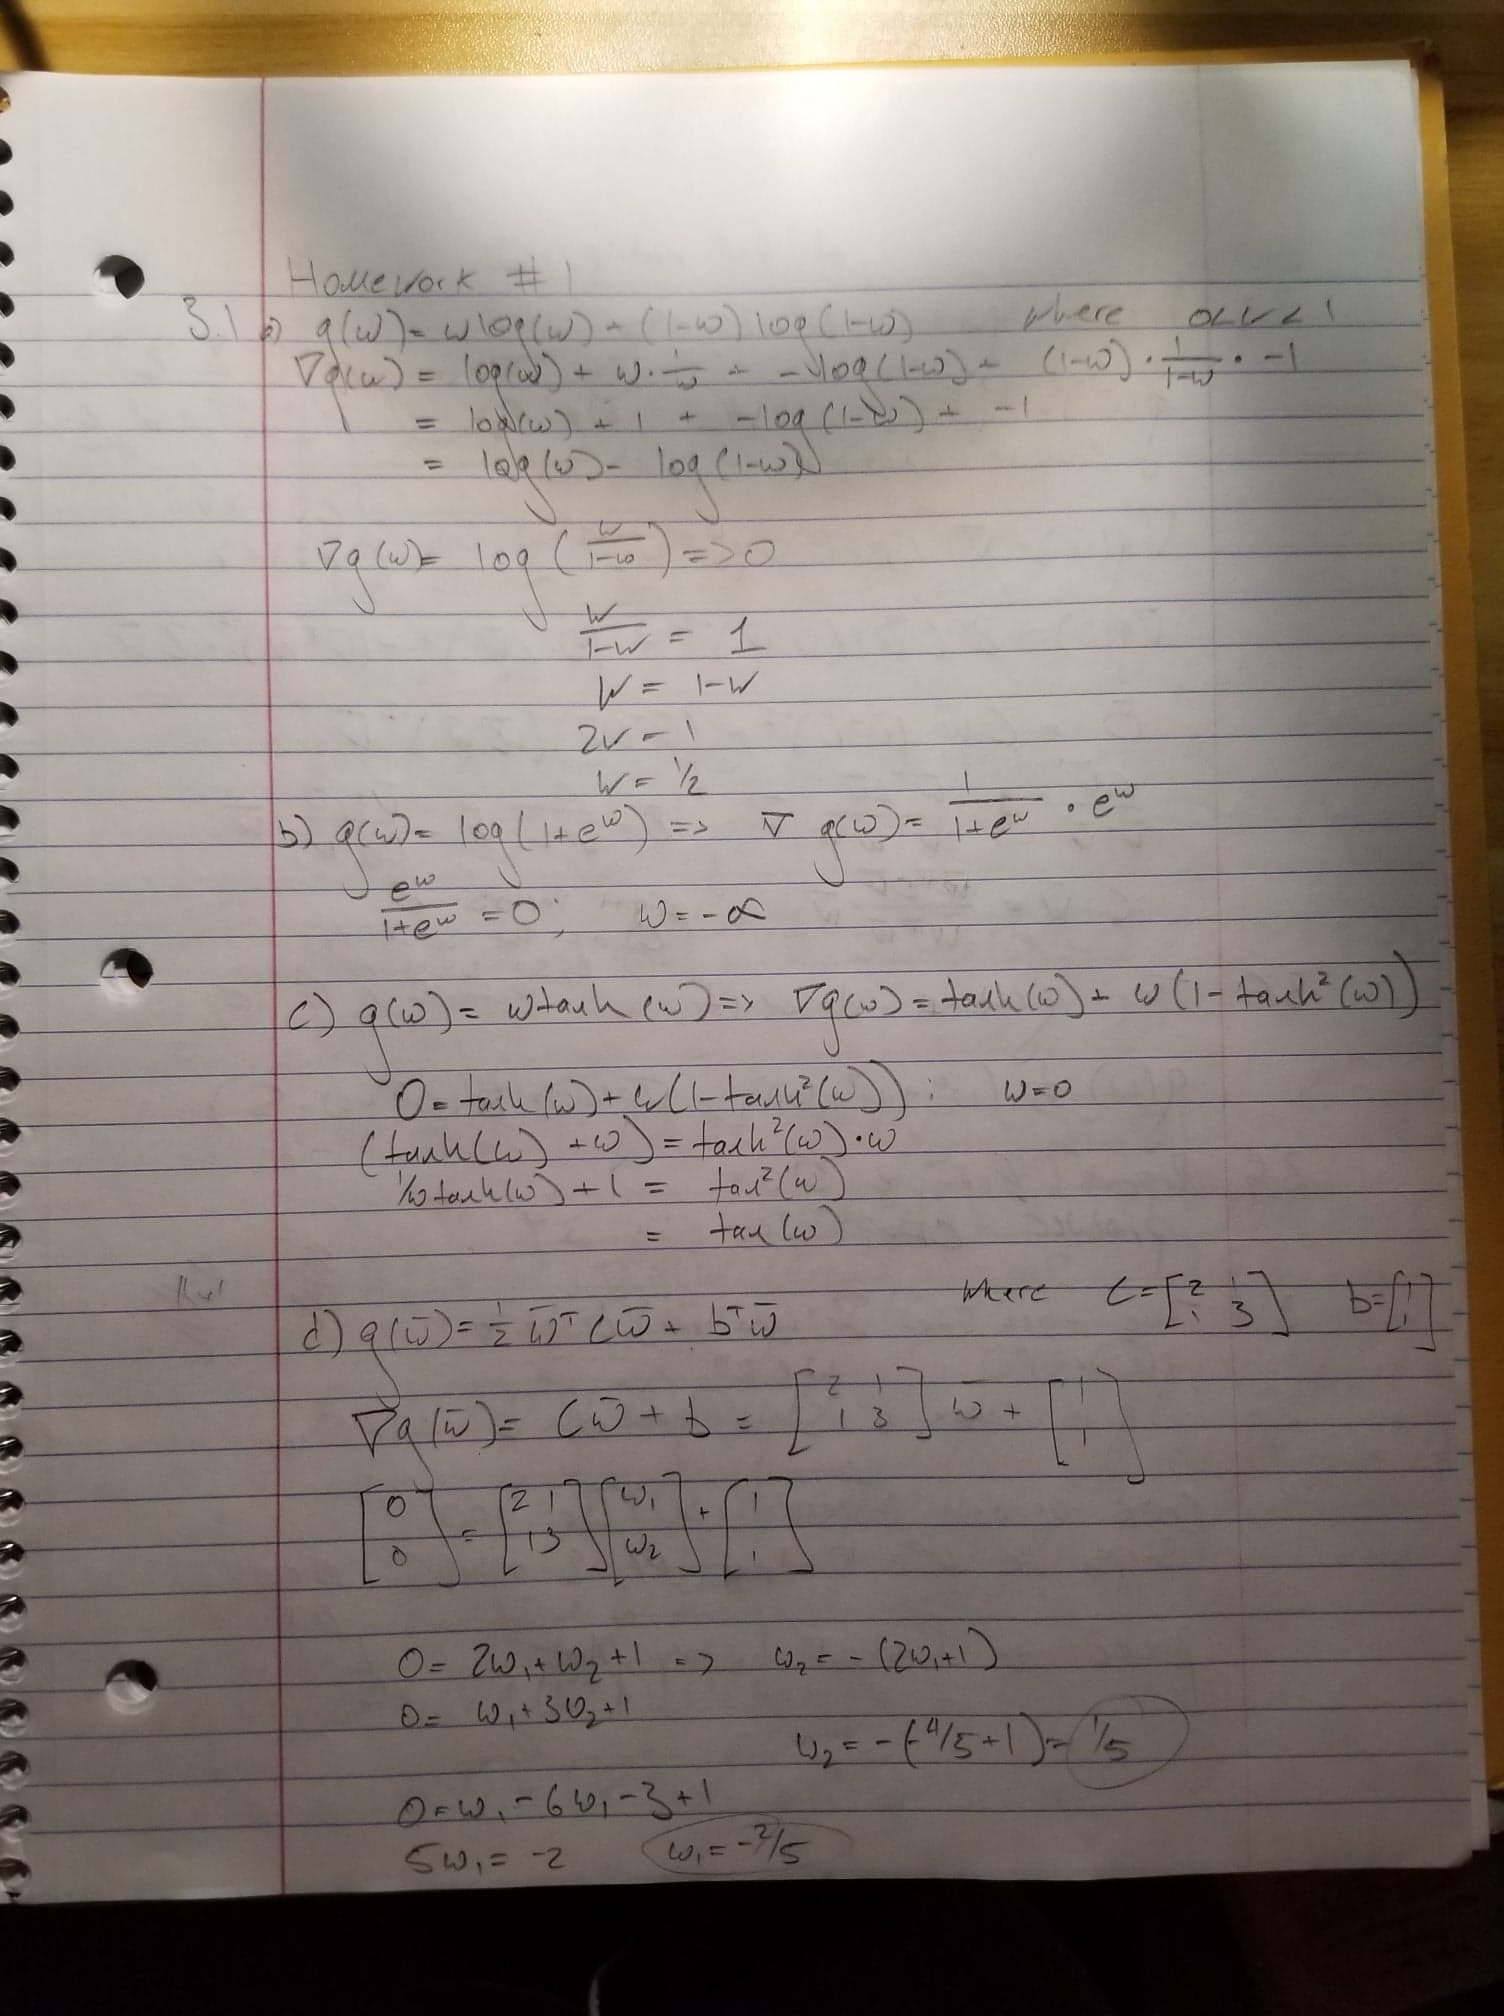 Homework #1
3.1 a) g(w) = w log(w) + (1-w) log(1-w) where 0<w<1
∇g(w) = log(w) + w · 1/w + -log(1-w) + (1-w) · 1/(1-w) · -1
= log(w) + 1 + -log(1-w) + -1
= log(w) - log(1-w)
∇g(w) = log(w/(1-w)) => 0
w/(1-w) = 1
w = 1-w
2w = 1
w = 1/2
b) g(w) = log(1+e^w) => ∇ g(w) = 1/(1+e^w) · e^w
e^w/(1+e^w) = 0; w = -∞
c) g(w) = w tanh(w) => ∇g(w) = tanh(w) + w(1 - tanh²(w))
0 = tanh(w) + w(1-tanh²(w)); w=0
(tanh(w) + w) = tanh²(w)·w
1/w tanh(w) + 1 = tan²(w)
= tan(w)
d) g(w̄) = 1/2 w̄ᵀCw̄ + bᵀw̄ where C = [2 1; 1 3] b = [1; 1]
∇g(w̄) = Cw̄ + b = [2 1; 1 3] w̄ + [1; 1]
[0; 0] = [2 1; 1 3] [w₁; w₂] + [1; 1]
0 = 2w₁ + w₂ + 1 => w₂ = -(2w₁+1)
0 = w₁ + 3w₂ + 1
w₂ = -(-4/5 + 1) = 1/5
0 = w₁ - 6w₁ - 3 + 1
5w₁ = -2 w₁ = -2/5